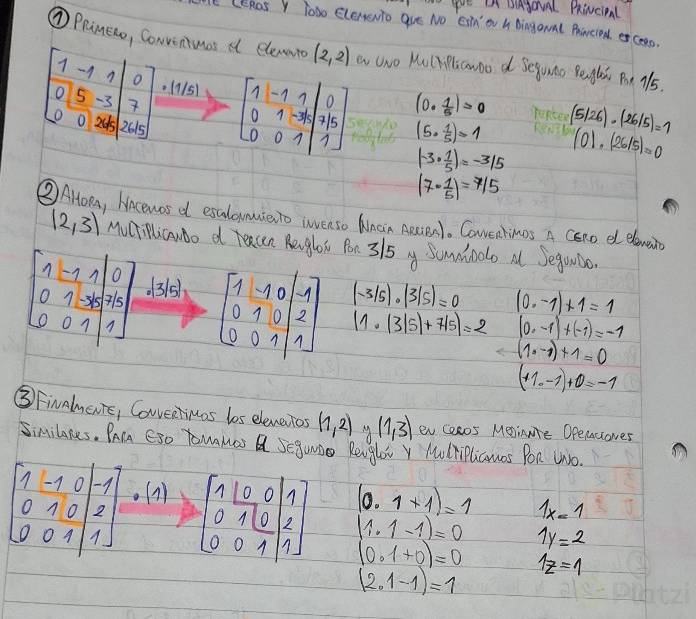 CEROS Y TODO ELEMENTO QUE NO ESTÁ EN LA DIAGONAL PRINCIPAL ES CERO.
① PRIMERO, CONVERTIMOS el elemento (2,2) EN UNO MULTIPLICANDO el SEGUNDO RENGLÓN POR 1/5.
1 -1 1 0
0 5 -3 7
0 0 26/5 26/5
•(1/5)
1 -1 1 0
0 1 -3/5 7/5
0 0 1 1
SEGUNDO RENGLÓN
(0 • 1/5) = 0
(5 • 1/5) = 1
(-3 • 1/5) = -3/5
(7 • 1/5) = 7/5
TERCER RENGLÓN
(5/26) • (26/5) = 1
(0) • (26/5) = 0
② AHORA, HACEMOS el escalonamiento INVERSO (HACIA ARRIBA). CONVERTIMOS A CERO el elemento
(2,3) MULTIPLICANDO el TERCER RENGLÓN POR 3/5 y SUMÁNDOLO AL SEGUNDO.
1 -1 1 0
0 1 -3/5 7/5
0 0 1 1
•(3/5)
1 -1 0 -1
0 1 0 2
0 0 1 1
(-3/5) • (3/5) = 0
(1 • (3/5) + 7/5) = 2
(0 • -1) + 1 = 1
(0 • -1) + (-1) = -1
(1 • -1) + 1 = 0
(+1 • -1) + 0 = -1
③ FINALMENTE, CONVERTIMOS los elementos (1,2) y (1,3) EN CEROS MEDIANTE OPERACIONES
SIMILARES. PARA ESO TOMAMOS El SEGUNDO Renglón Y MULTIPLICAMOS POR UNO.
1 -1 0 -1
0 1 0 2
0 0 1 1
•(1)
1 0 0 1
0 1 0 2
0 0 1 1
(0 • 1 + 1) = 1
(1 • 1 - 1) = 0
(0 • 1 + 0) = 0
(2 • 1 - 1) = 1
1x = 1
1y = 2
1z = 1
Platzi